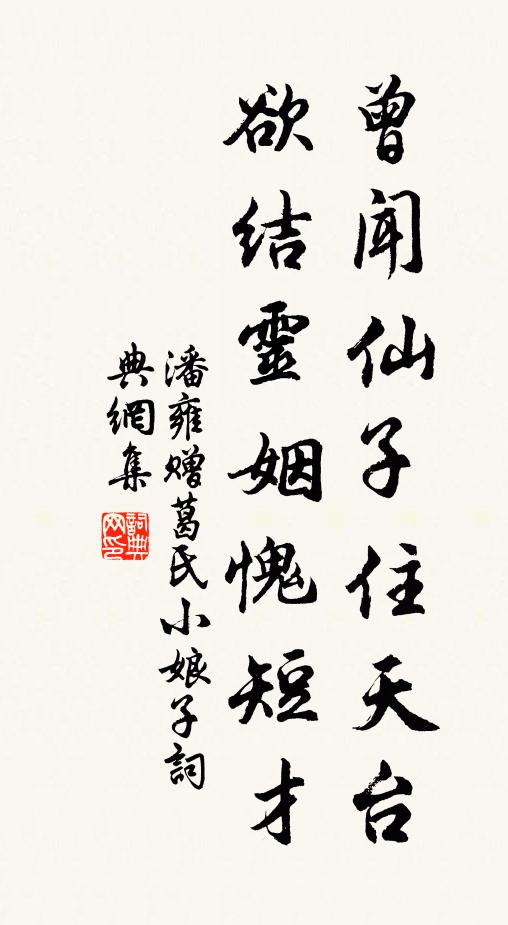 曾闻仙子住天台
欲结靈姻愧短才
潘雍赠葛氏小娘子詞
典網集
詞典网印